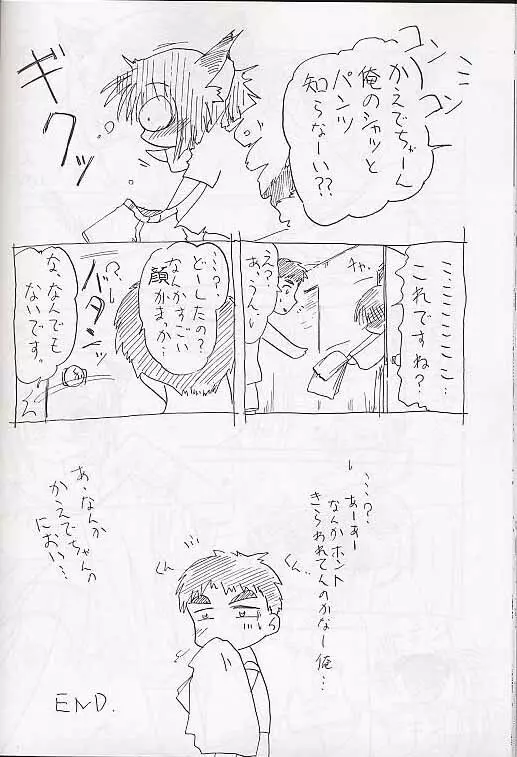 コンコン
かえでちゃーん
俺のシャツと
パンツ
知らなーい??
ギクッ
こ、こここここ…
これですね?…
え?
あ、うん
チャ
…?
どーしたの?
なんかすごい
顔がまっか…
バタンッ
な、なんでも
ないです。
…?
あーあー
なんかホント
きらわれてんのかなー俺…
くん…
くん
あ、なんか
かえでちゃんの
におい…
END.